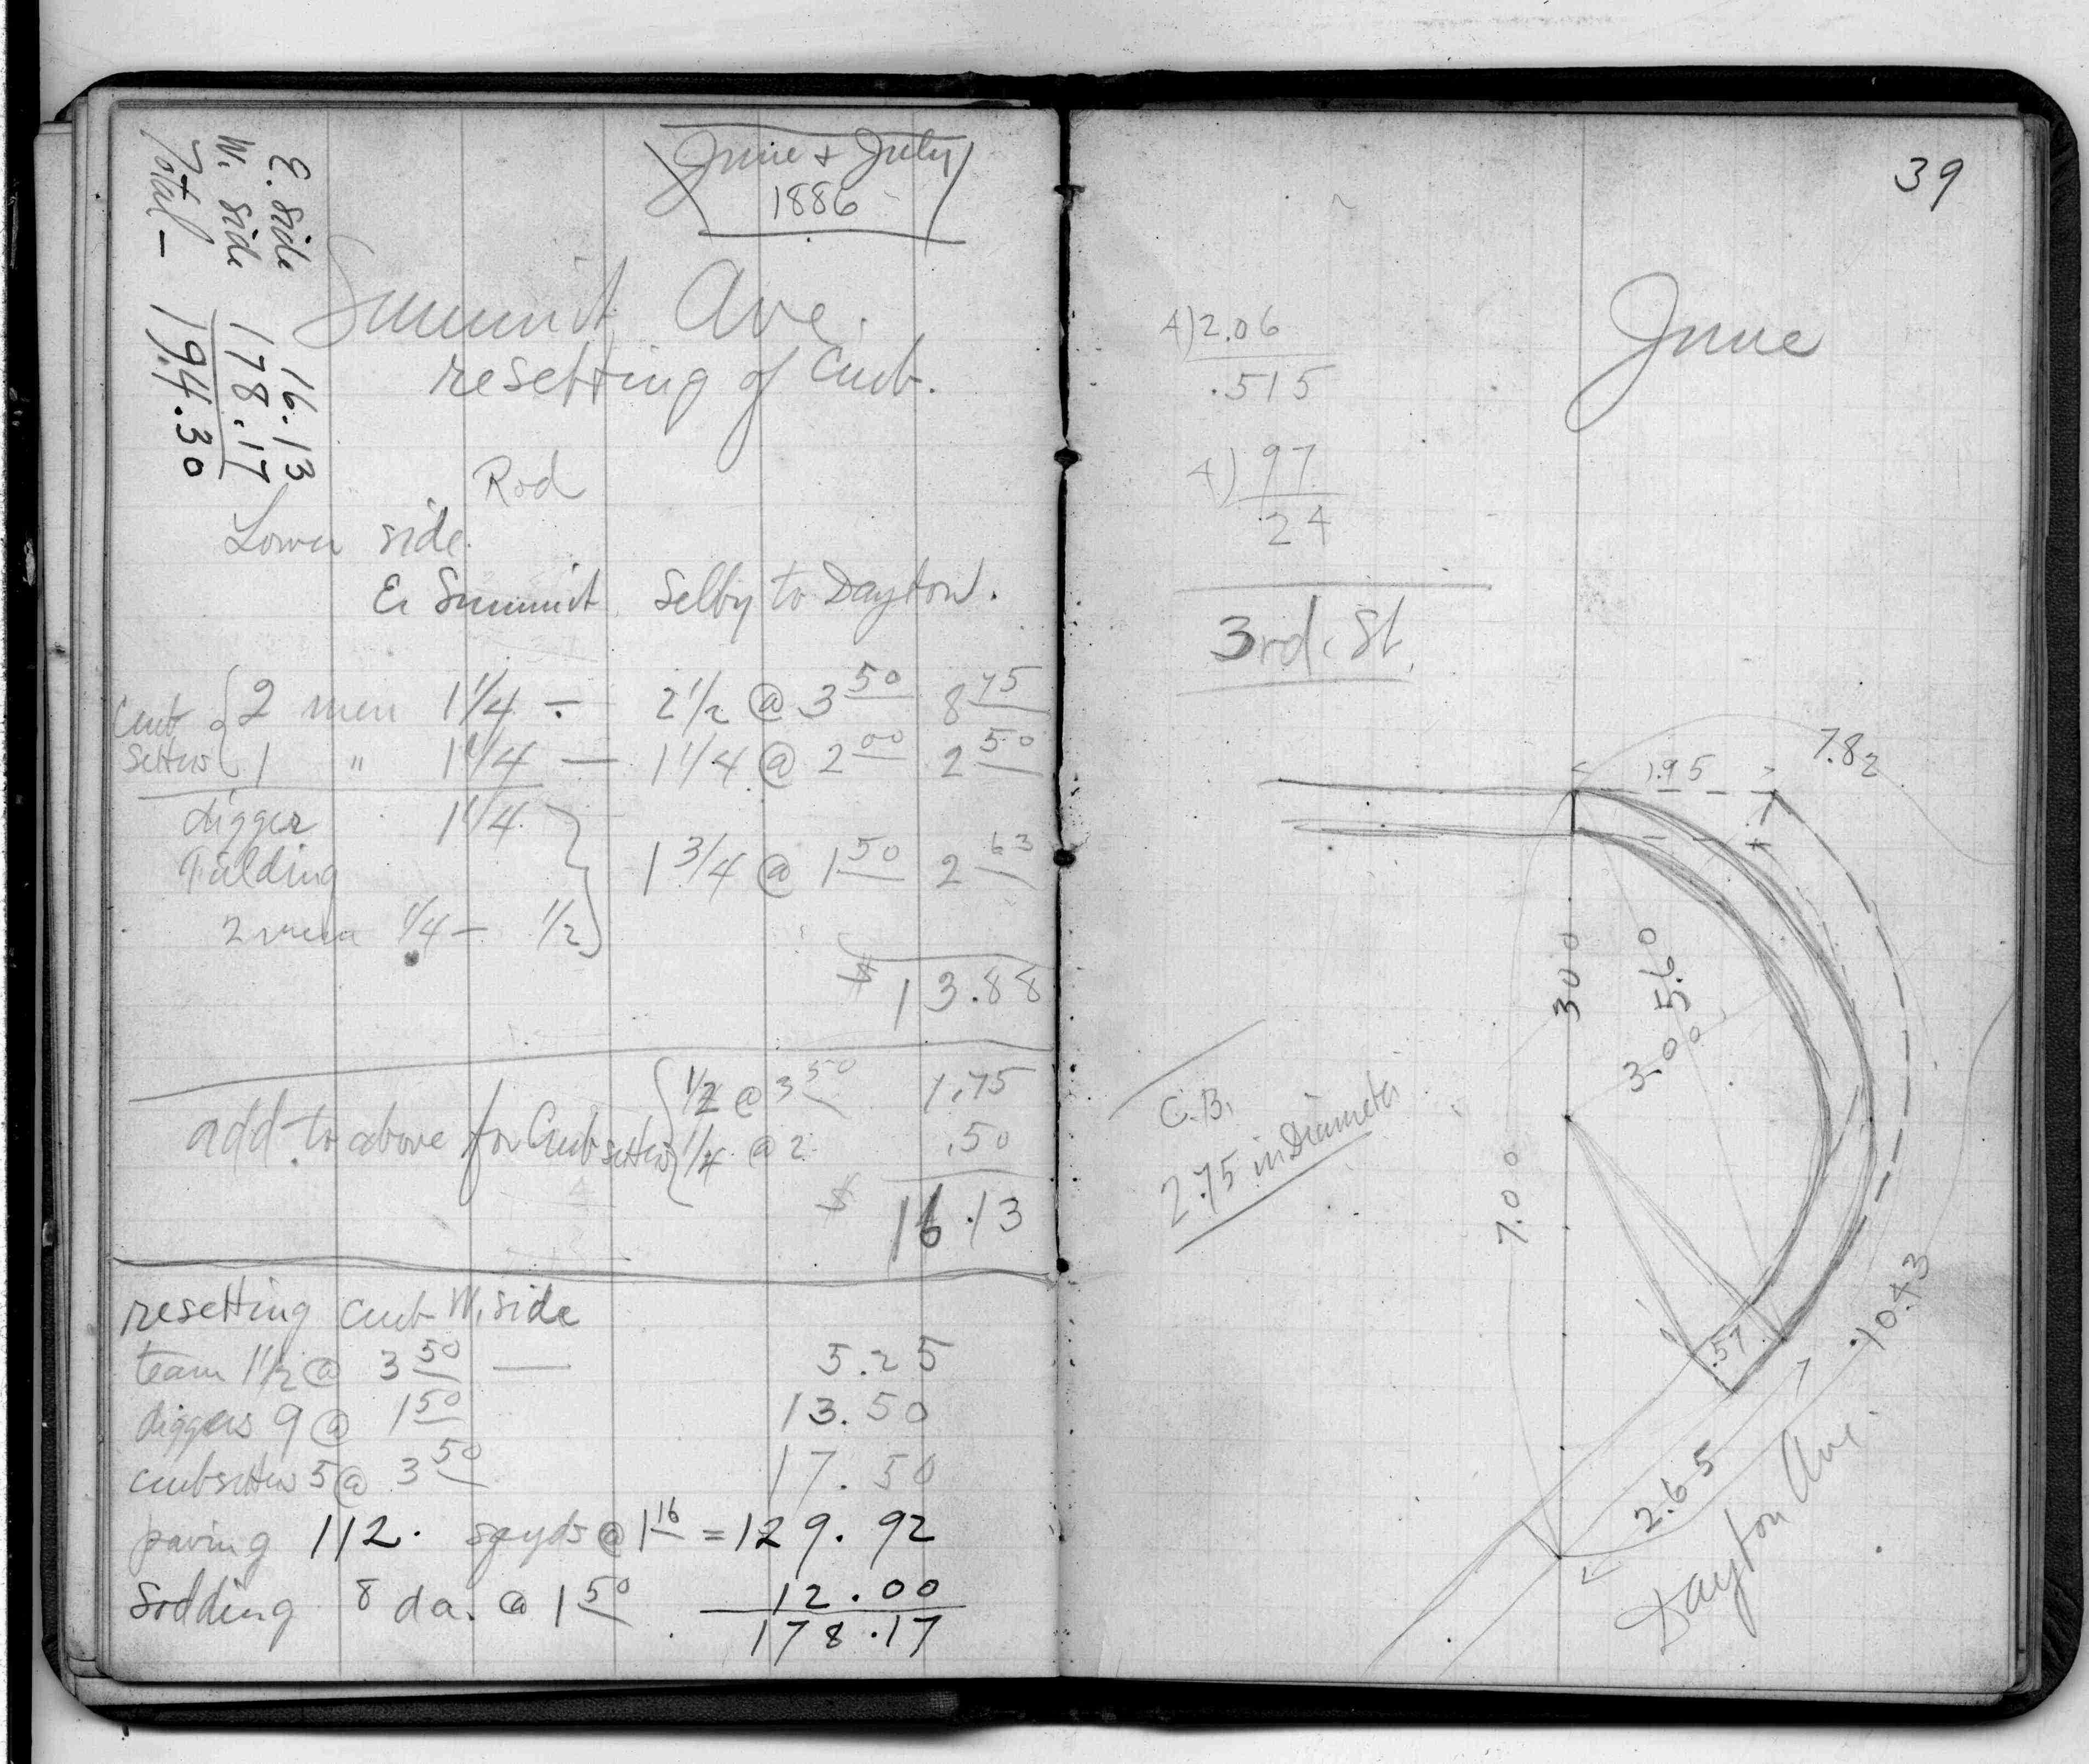 E. Side 16.13
W. Side 178.17
Total — 194.30
June & July
1886
Summit Ave.
resetting of Curb.
Rod
Lower side.
E. Summit Selby to Dayton.
Curb Setters { 2 men 1 1/4 — 2 1/2 @ 3 50 8 75
1 " 1 1/4 — 1 1/4 @ 2 00 2 50
digger 1 1/4
2 men 1/4 — 1/2 } 1 3/4 @ 1 50 2 63
$ 13.88
add to above for Curb setters { 1/2 @ 3 50 1.75
1/4 @ 2 .50
$ 16.13
resetting curb W. side
team 1 1/2 @ 3 50 — 5.25
diggers 9 @ 1 50 13.50
curbsetters 5 @ 3 50 17.50
paving 112. sqyds @ 1 16 = 129.92
Sodding 8 da. @ 1 50 12.00
178.17
39
June
4)2.06
.515
4) 97
24
3rd. St.
1.95
7.82
300
5.60
3.00
C.B.
2.75 in Diameter
7.00
.57
10.43
2.65
Dayton Ave.